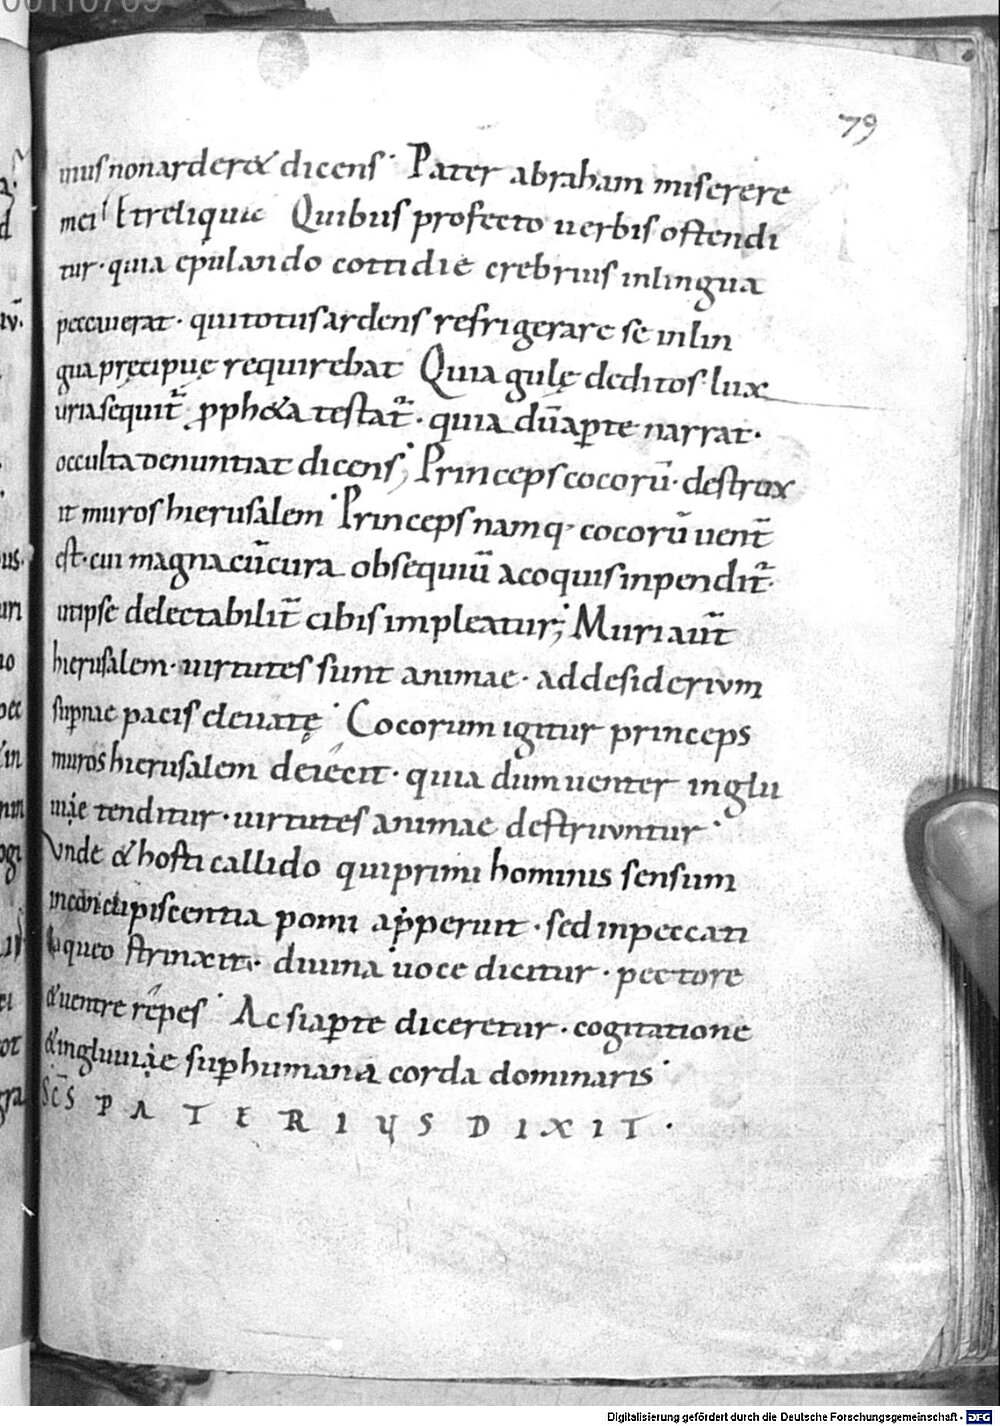 79
mus non arder& dicens · Pater abraham miserere
mei ! Et reliquie Quibus profecto uerbis ostendi
tur · quia epulando cottidie crebrius in lingua
peccauerat · qui totus ardens refrigerare se in lin
gua pręcipuę requirebat Quia gulę deditos lux
uria sequit̃ ꝓph&a testat̃ · quia dū aꝑte narrat ·
occulta denuntiat dicens ; Princeps cocorū · destrux
it muros hierusalem · Princeps namq· cocorū uent̃
est · cui magna cū cura obsequiū a coquis inpendit̃ ·
ut ipse delectabilit̃ cibis impleatur ; Muri aut̃
hierusalem · uirtutes sunt animae · ad desiderium
suꝑnae pacis eleuatę · Cocorum igitur princeps
muros hierusalem deiecit · quia dum uenter inglu
uiae tenditur · uirtutes animae destruuntur ·
Vnde & hosti callido qui primi hominis sensum
in concupiscentia pomi apperuit · sed in peccati
laqueo strinxit · diuina uoce dicitur · pectore
& uentre repes · Ac si aꝑte diceretur · cogitatione
& ingluuiae suꝑ humana corda dominaris ·
SC̄S PATERIUS DIXIT ·
Digitalisierung gefördert durch die Deutsche Forschungsgemeinschaft - DFG